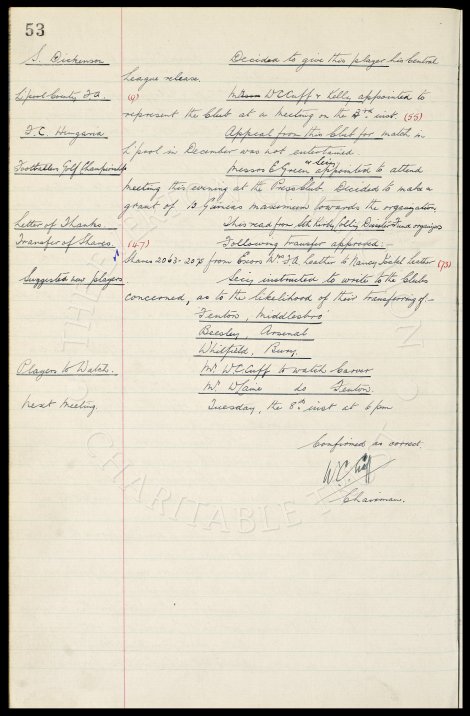 53
S. Dickenson Decided to give this player his Central
League release.
L'pool County F.A. (9) Messrs W C Cuff & Kelly appointed to
represent the Club at a meeting on the 3rd inst. (55)
F.C. Hungaria Appeal from this Club for match in
L'pool in December was not entertained
Footballers Golf Championship Messrs E Green & Secy appointed to attend
meeting this evening at the Press Club. Decided to make a
grant of 13 Guineas maximum towards the organization.
Letter of Thanks This read from Kirkby Colliery Disaster Fund organizers
Transfer of Shares. (47) Following transfer approved:-
Shares 2063-2074 from Exors Wm F A Leather to Nancy Isobel Leather (73)
Suggested new players. Secy instructed to write to the Clubs
concerned, as to the likelihood of their transferring:-
Fenton, Middlesbro'
Beesley, Arsenal
Whitfield, Bury.
Players to Watch. Mr W C Cuff to watch Carver
Mr W do Fenton.
Next Meeting. Tuesday, the 8th inst at 6 pm
Confirmed as correct
W.C. Cuff
Chairman.
CHARITABLE